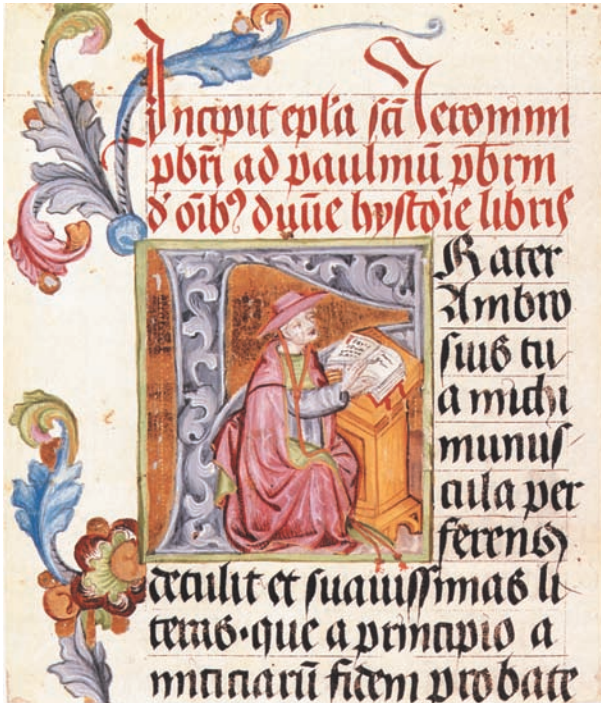 Incipit epl'a scī Jeronimi
pbr̄i ad paulinū pbrm
d' oībꝰ diuīe hystoīe libris
FRater
Ambro
sius tu
a michi
munus
cula per
ferens
detulit et suauissimas li
teras·que a principio a
miciciarū fidem probate